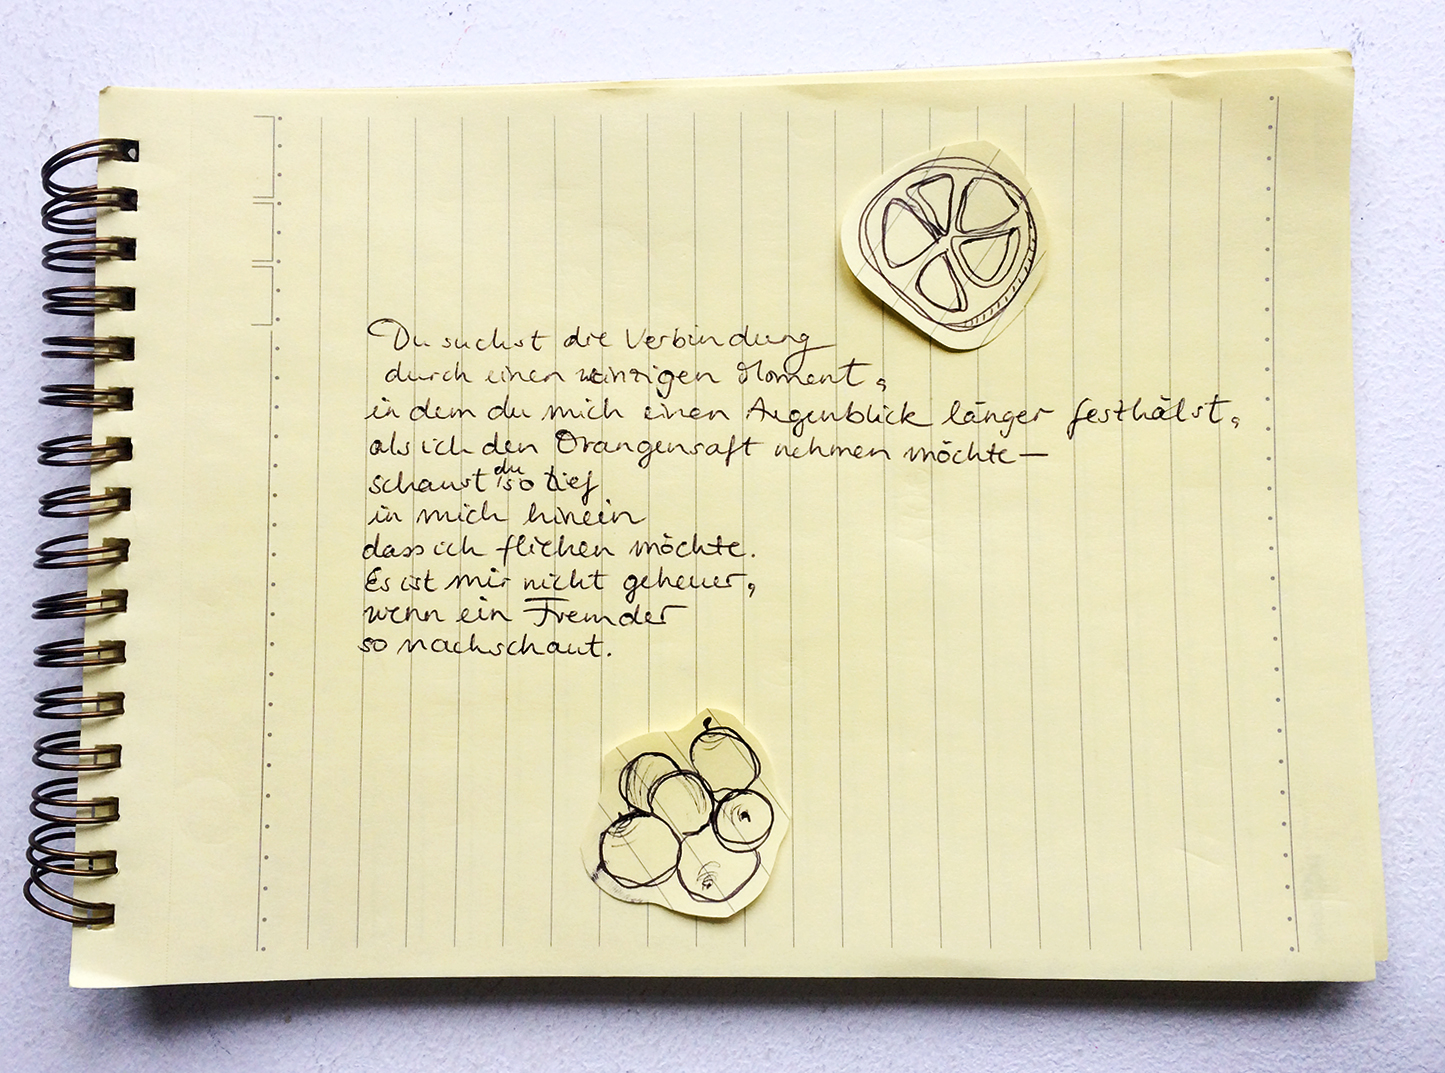 Du suchst die Verbindung
durch einen winzigen Moment,
in dem du mich einen Augenblick länger festhälst,
als ich den Orangensaft nehmen möchte —
schaust du so tief
in mich hinein
dass ich fliehen möchte.
Es ist mir nicht geheuer,
wenn ein Fremder
so nachschaut.